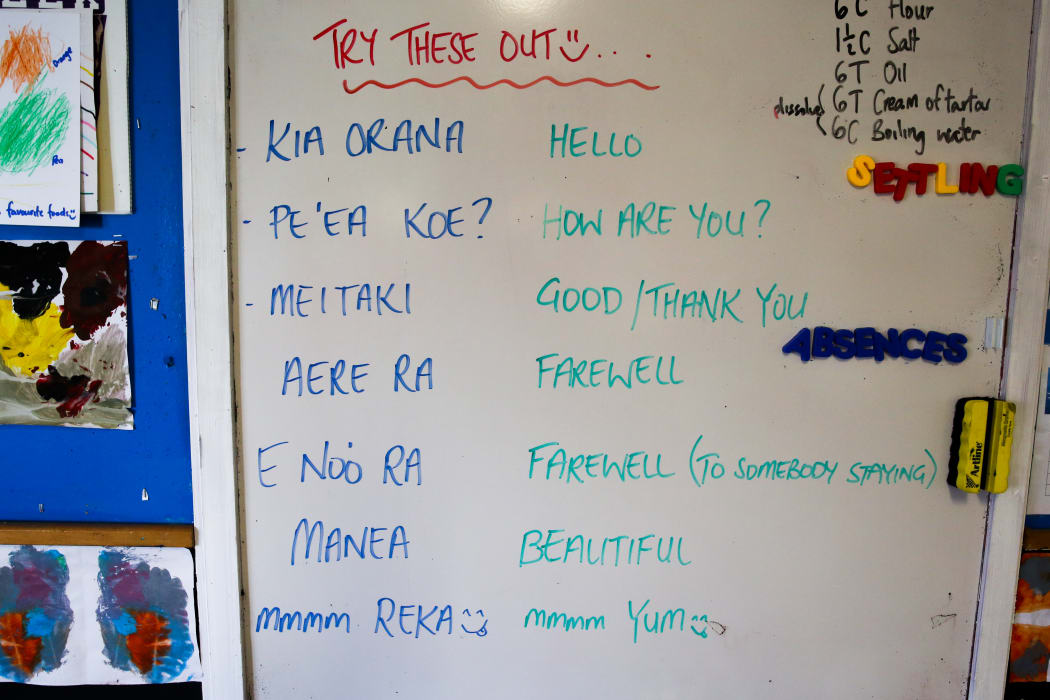 TRY THESE OUT....
- KIA ORANA HELLO
- PE'EA KOE? HOW ARE YOU?
- MEITAKI GOOD/THANK YOU
AERE RA FAREWELL
E NO'O RA FAREWELL (TO SOMEBODY STAYING)
MANEA BEAUTIFUL
mmmm REKA mmmm YUM
6C Flour
1½C Salt
6T Oil
dissolve 6T Cream of tartar
6C Boiling water
SETTLING
ABSENCES
Artline
orange
favourite foods